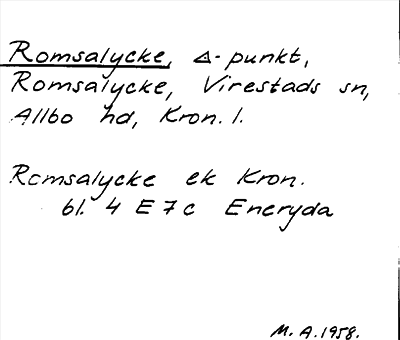 Romsalycke, △-punkt,
Romsalycke, Virestads sn,
Allbo hd, Kron. l.
Romsalycke ek Kron.
bl. 4 E 7 c Eneryda
M. A. 1958.